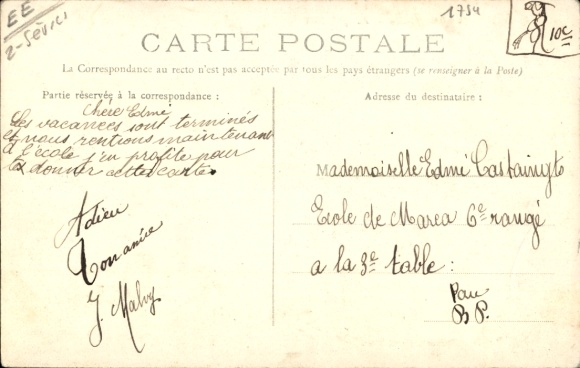 EE
2-Sèvres
1734
10c
CARTE POSTALE
La Correspondance au recto n'est pas acceptée par tous les pays étrangers (se renseigner à la Poste)
Partie réservée à la correspondance :
Chère Edmé
Les vacances sont terminés
et nous rentrions maintenant
à l'école j'en profite pour
te donner cette carte
Adieu
Ton amie
J. Malvy
Adresse du destinataire :
Mademoiselle Edmé
Ecole de Marca 6e rangé
a la 3e table :
Pau
BP.